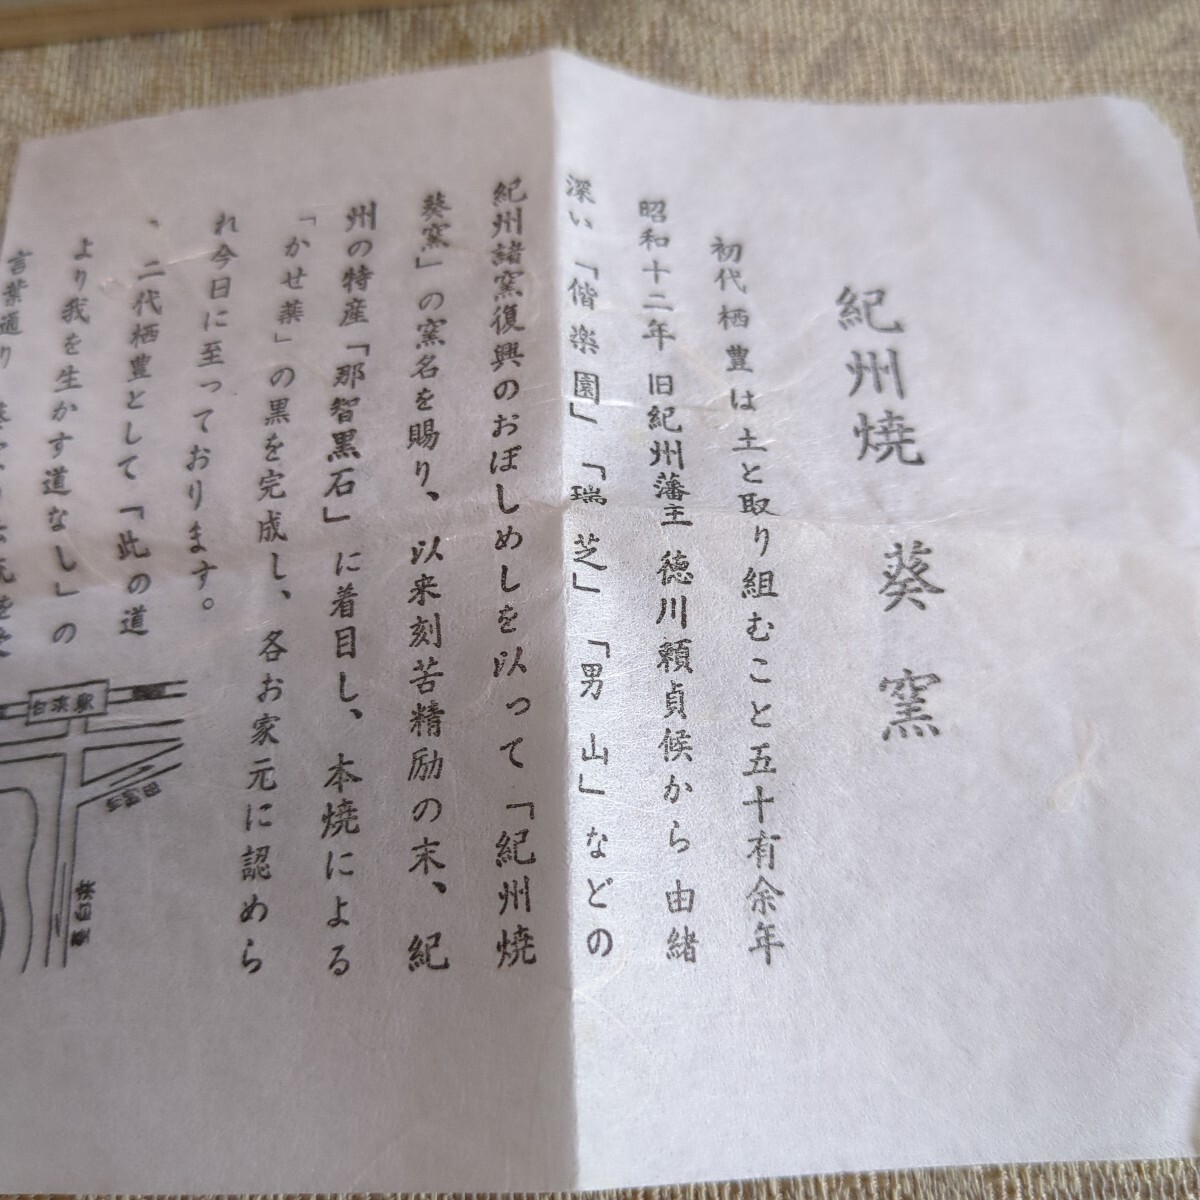 紀州焼 葵窯
初代栖豊は土と取り組むこと五十有余年
昭和十二年 旧紀州藩主 徳川頼貞候から由緒
深い「偕楽園」「瑞芝」「男山」などの
紀州諸窯復興のおぼしめしを以って「紀州焼
葵窯」の窯名を賜り、以来刻苦精励の末、紀
州の特産「那智黒石」に着目し、本焼による
「かせ薬」の黒を完成し、各お家元に認めら
れ今日に至っております。
、二代栖豊として「此の道
より我を生かす道なし」の
言葉通り
白浜駅